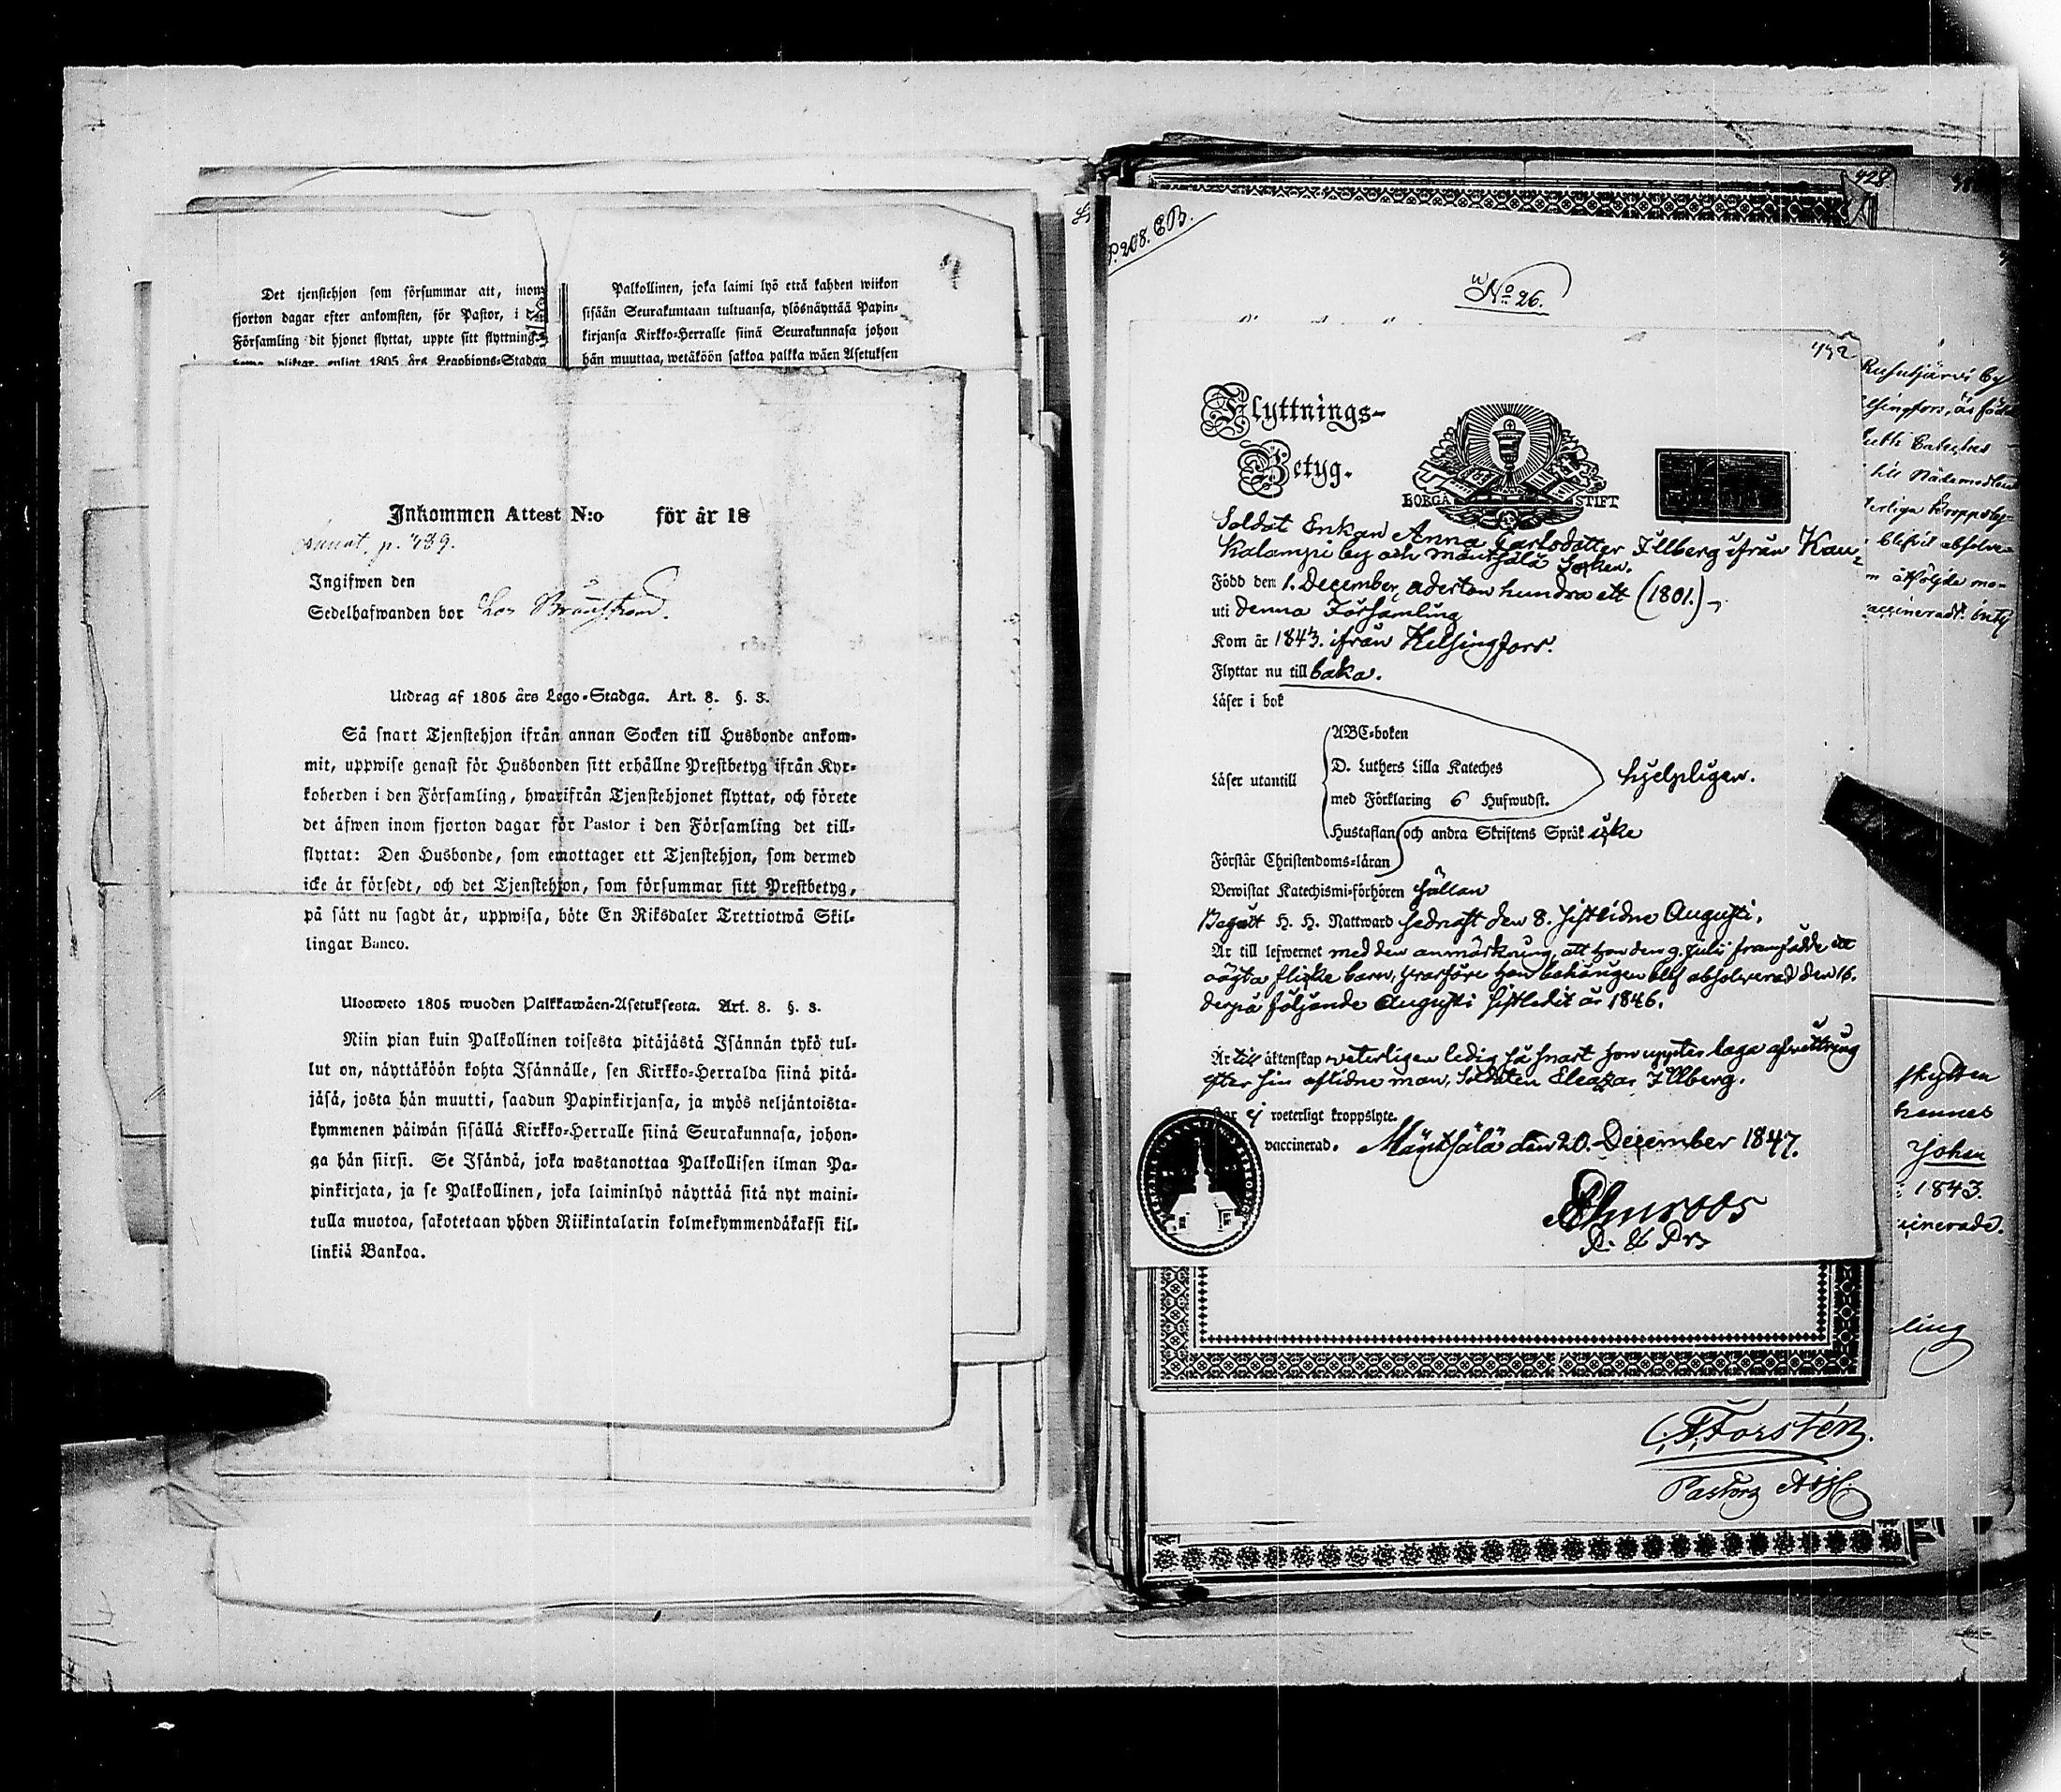 Det tjenstehjon som försummar att, inom
fjorton dagar efter ankomsten, för Pastor, i
Församling dit hjonet flyttat, uppte sitt flyttning
pliktar, enligt 1805 års Legohjons-Stadga
Palkollinen, joka laimi lyö että kahden wiikon
sisään Seurakuntaan tultuansa, ylösnäyttää Papin-
kirjansa Kirkko-Herralle siinä Seurakunnasa johon
hän muuttaa, wetäköön sakkoa palkka wäen Asetuksen
Inkommen Attest N:o för år 18
p. 439.
Ingifwen den
Sedelhafwanden bor hos
Utdrag af 1805 års Lego-Stadga. Art. 8. §. 3.
Så snart Tjenstehjon ifrån annan Socken till Husbonde ankom-
mit, uppwise genast för Husbonden sitt erhållne Prestbetyg ifrån Kyr-
koherden i den Församling, hwarifrån Tjenstehjonet flyttat, och förete
det äfwen inom fjorton dagar för Pastor i den Församling det till-
flyttat: Den Husbonde, som emottager ett Tjenstehjon, som dermed
icke är försedt, och det Tjenstehjon, som försummar sitt Prestbetyg,
på sätt nu sagdt är, uppwisa, böte En Riksdaler Trettiotwå Skil-
lingar Banco.
Ulosweto 1805 wuoden Palkkawäen-Asetuksesta. Art. 8. §. 3.
Niin pian kuin Palkollinen toisesta pitäjästä Isännän tykö tul-
lut on, näyttäköön kohta Isännälle, sen Kirkko-Herralda siinä pitä-
jäsä, josta hän muutti, saadun Papinkirjansa, ja myös neljäntoista-
kymmenen päiwän sisällä Kirkko-Herralle siinä Seurakunnasa, johon-
ga hän siirsi. Se Isändä, joka wastanottaa Palkollisen ilman Pa-
pinkirjata, ja se Palkollinen, joka laiminlyö näyttää sitä nyt maini-
tulla muotoa, sakotetaan yhden Riikintalarin kolmekymmendäkaksi kil-
linkiä Bankoa.
428
P. 208. EB.
No 26.
432
Flyttnings-
Betyg.
BORGÅ STIFT
Soldat Enkan Anna Carlsdotter Illberg ifrån Kau-
kalampi by och Mäntsälä Socken.
Född den 1. December, aderton hundra ett (1801.)
uti denna Församling
Kom år 1843. ifrån Helsingfors.
Flyttar nu till baka.
Läser i bok
Läser utantill
ABC-boken
D. Luthers Lilla Kateches
med Förklaring 6 Hufwudst.
Hustaflan och andra Skriftens Språk icke
hjelpligen.
Förstår Christendoms-läran
Bewistat Katechismi-förhören sällan
Begått H. H. Nattward sednast den 8. sistlidne Augusti.
Är till lefwernet med den anmärkning, att hon den 9. Juli framfödde ett
oägta flicke barn, hvarföre hon behörigen blef absolverad den 16.
derpå följande Augusti sistledit år 1846.
Är till äktenskap veterligen ledig så snart hon uppter laga afvittring
efter sin aflidne man, Soldaten Eleazar Illberg.
Har ej weterligt kroppslyte.
vaccinerad. Mäntsälä den 20. December 1847.
Almroos
by
Helsingfors, är född
Cateches
till
absolve-
åtföljde
1843.
C. F. Forstén.
Pastors Adj.